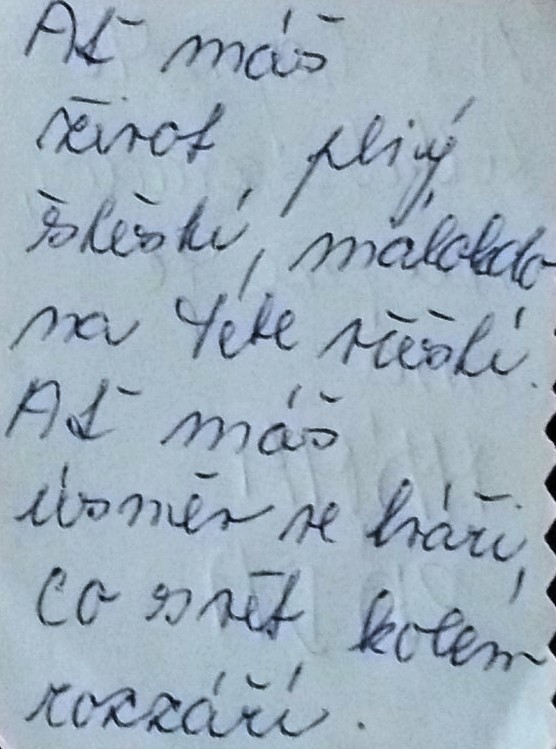 Ať máš
život plný
štěstí, málokdo
na tétе
Ať máš
úsměv ve tváři,
co svět kolem
rozzáří.